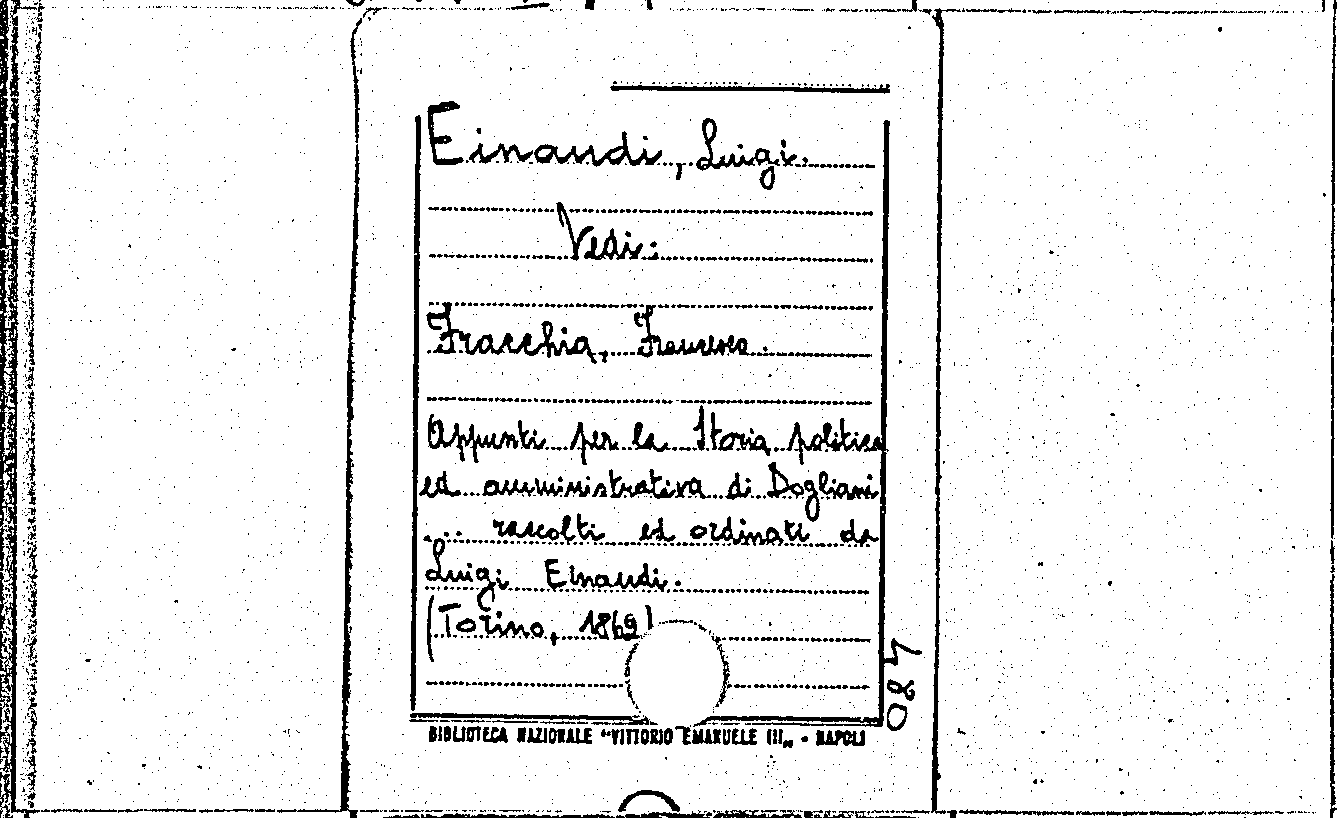 Einaudi, Luigi.
Vedi:
Fracchia, Francesco.
Appunti per la Storia politica
ed amministrativa di Dogliani
... raccolti ed ordinati da
Luigi Einaudi.
(Torino, 1869)
BIBLIOTECA NAZIONALE "VITTORIO EMANUELE III„ - NAPOLI